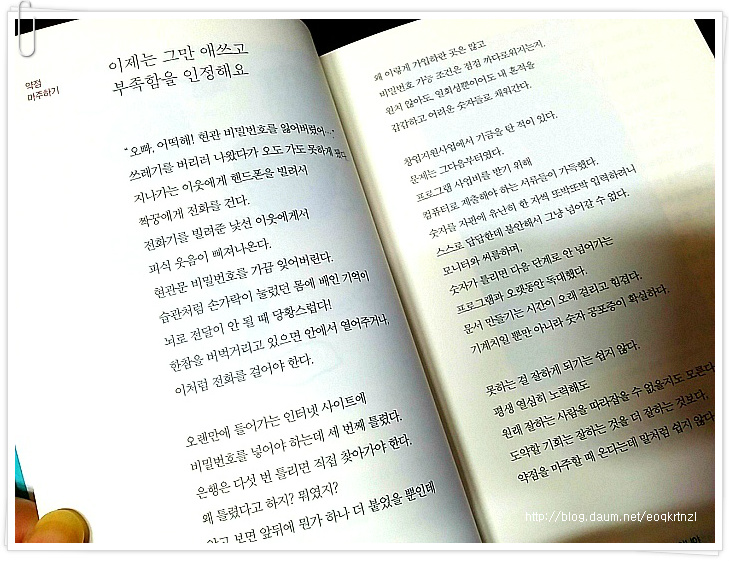 약점
마주하기
이제는 그만 애쓰고
부족함을 인정해요
"오빠, 어떡해! 현관 비밀번호를 잃어버렸어…"
쓰레기를 버리러 나왔다가 오도 가도 못하게 됐다.
지나가는 이웃에게 핸드폰을 빌려서
짝꿍에게 전화를 건다.
전화기를 빌려준 낯선 이웃에게서
피식 웃음이 삐져나온다.
현관문 비밀번호를 가끔 잊어버린다.
습관처럼 손가락이 눌렀던 몸에 배인 기억이
뇌로 전달이 안 될 때 당황스럽다!
한참을 버벅거리고 있으면 안에서 열어주거나,
이처럼 전화를 걸어야 한다.
오랜만에 들어가는 인터넷 사이트에
비밀번호를 넣어야 하는데 세 번째 틀렸다.
은행은 다섯 번 틀리면 직접 찾아가야 한다.
왜 틀렸다고 하지? 뭐였지?
알고 보면 앞뒤에 뭔가 하나 더 붙었을 뿐인데
왜 이렇게 가입하란 곳은 많고
비밀번호 가능 조건은 점점 까다로워지는지.
원치 않아도, 일회성뿐이어도 내 흔적을
갑갑하고 어려운 숫자들로 채워간다.
창업지원사업에서 기금을 탄 적이 있다.
문제는 그다음부터였다.
프로그램 사업비를 받기 위해
컴퓨터로 제출해야 하는 서류들이 가득했다.
숫자를 자판에 유난히 한 자씩 또박또박 입력하려니
스스로 답답한데 불안해서 그냥 넘어갈 수 없다.
모니터와 씨름하며,
숫자가 틀리면 다음 단계로 안 넘어가는
프로그램과 오랫동안 독대했다.
문서 만들기는 시간이 오래 걸리고 힘겹다.
기계치일 뿐만 아니라 숫자 공포증이 확실하다.
못하는 걸 잘하게 되기는 쉽지 않다.
평생 열심히 노력해도
원래 잘하는 사람을 따라잡을 수 없을지도 모른다.
도약할 기회는 잘하는 것을 더 잘하는 것보다,
약점을 마주할 때 온다는데 말처럼 쉽지 않다.
http://blog.daum.net/eoqkrtnzl